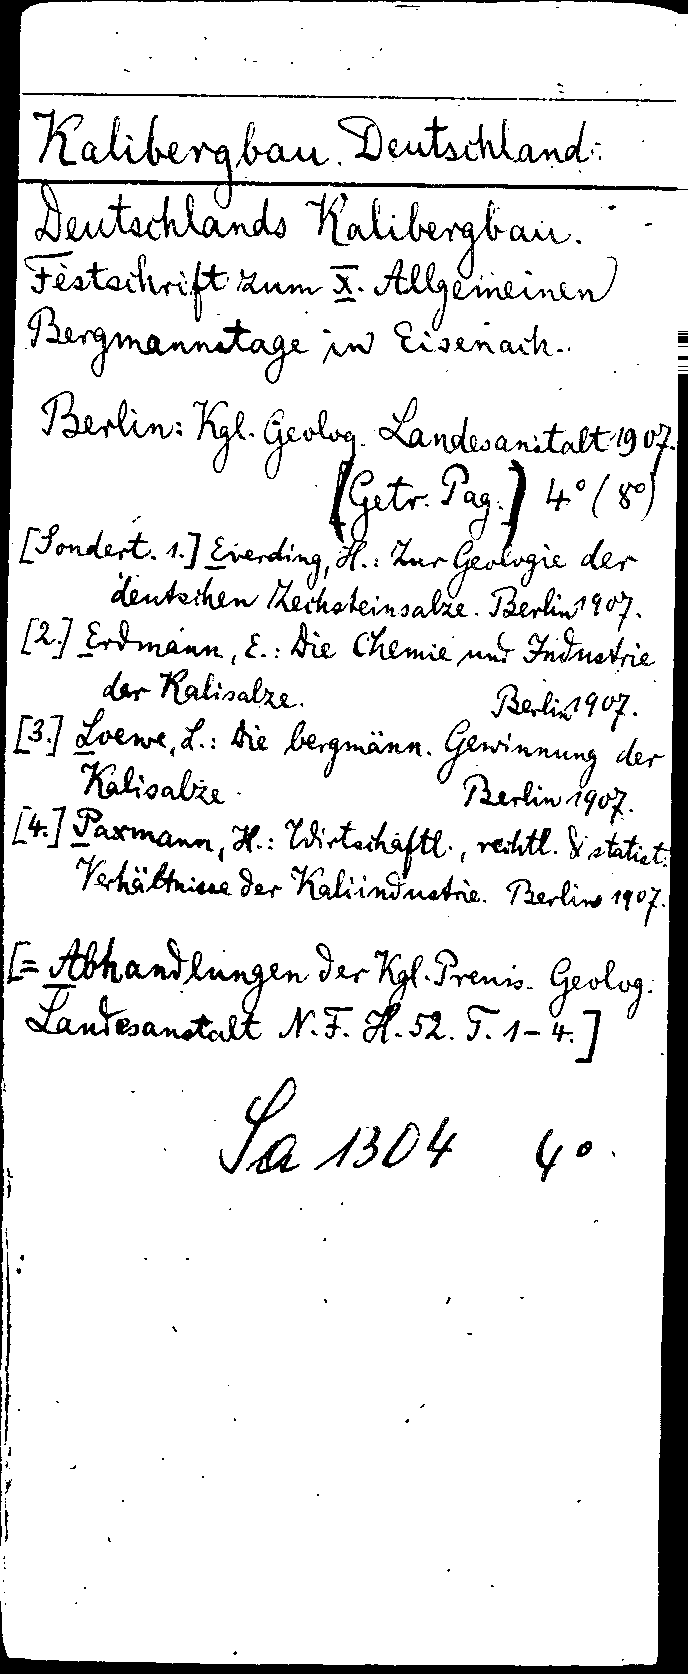 Kalibergbau. Deutschland.
Deutschlands Kalibergbau.
Festschrift zum X. Allgemeinen
Bergmannstage in Eisenach.
Berlin: Kgl. Geolog. Landesanstalt 1907.
(Getr. Pag.) 4° (8°)
[Sondert. 1.] Everding, H.: Zur Geologie der
deutschen Zechsteinsalze. Berlin 1907.
[2.] Erdmann, E.: Die Chemie und Industrie
der Kalisalze. Berlin 1907.
[3.] Loewe, L.: Die bergmänn. Gewinnung der
Kalisalze. Berlin 1907.
[4.] Paxmann, H.: Wirtschaftl., rechtl. & statist.
Verhältnisse der Kaliindustrie. Berlin 1907.
[= Abhandlungen der Kgl. Preuss. Geolog.
Landesanstalt N. F. H. 52. T. 1-4.]
Sa 1304 4°.